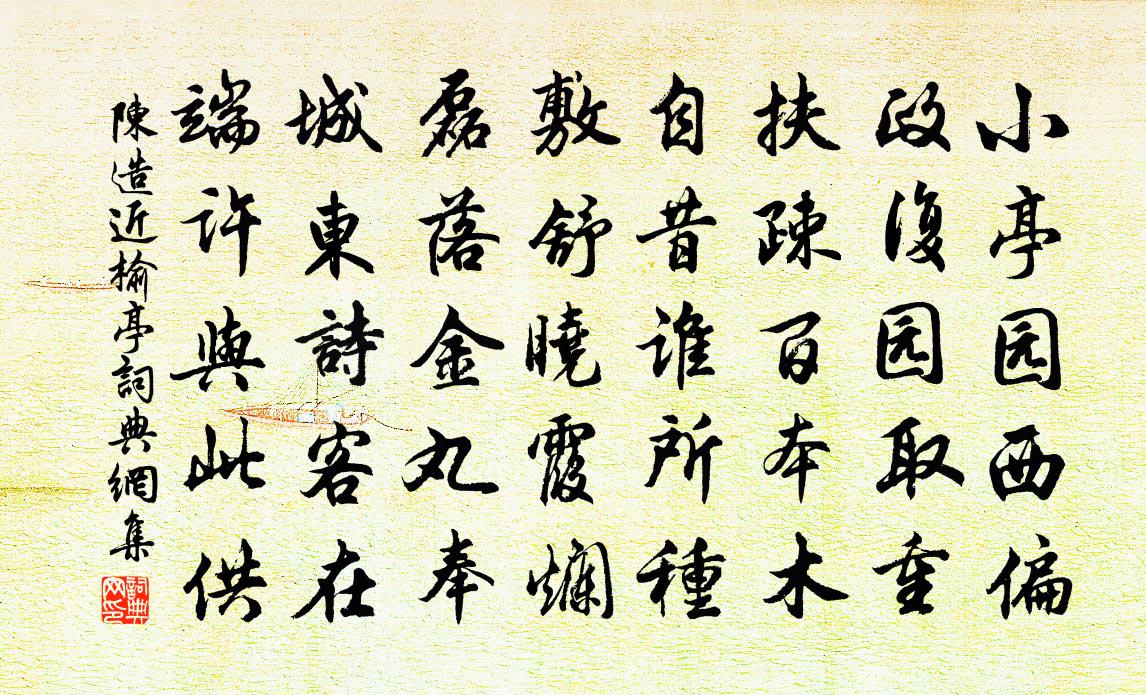 小亭园西偏
政復园取重
扶疎百本木
自昔谁所種
敷舒曉霞爛
磊落金丸奉
城東詩客在
端許與此供
陳造近榆亭詞典網集
詞典網印